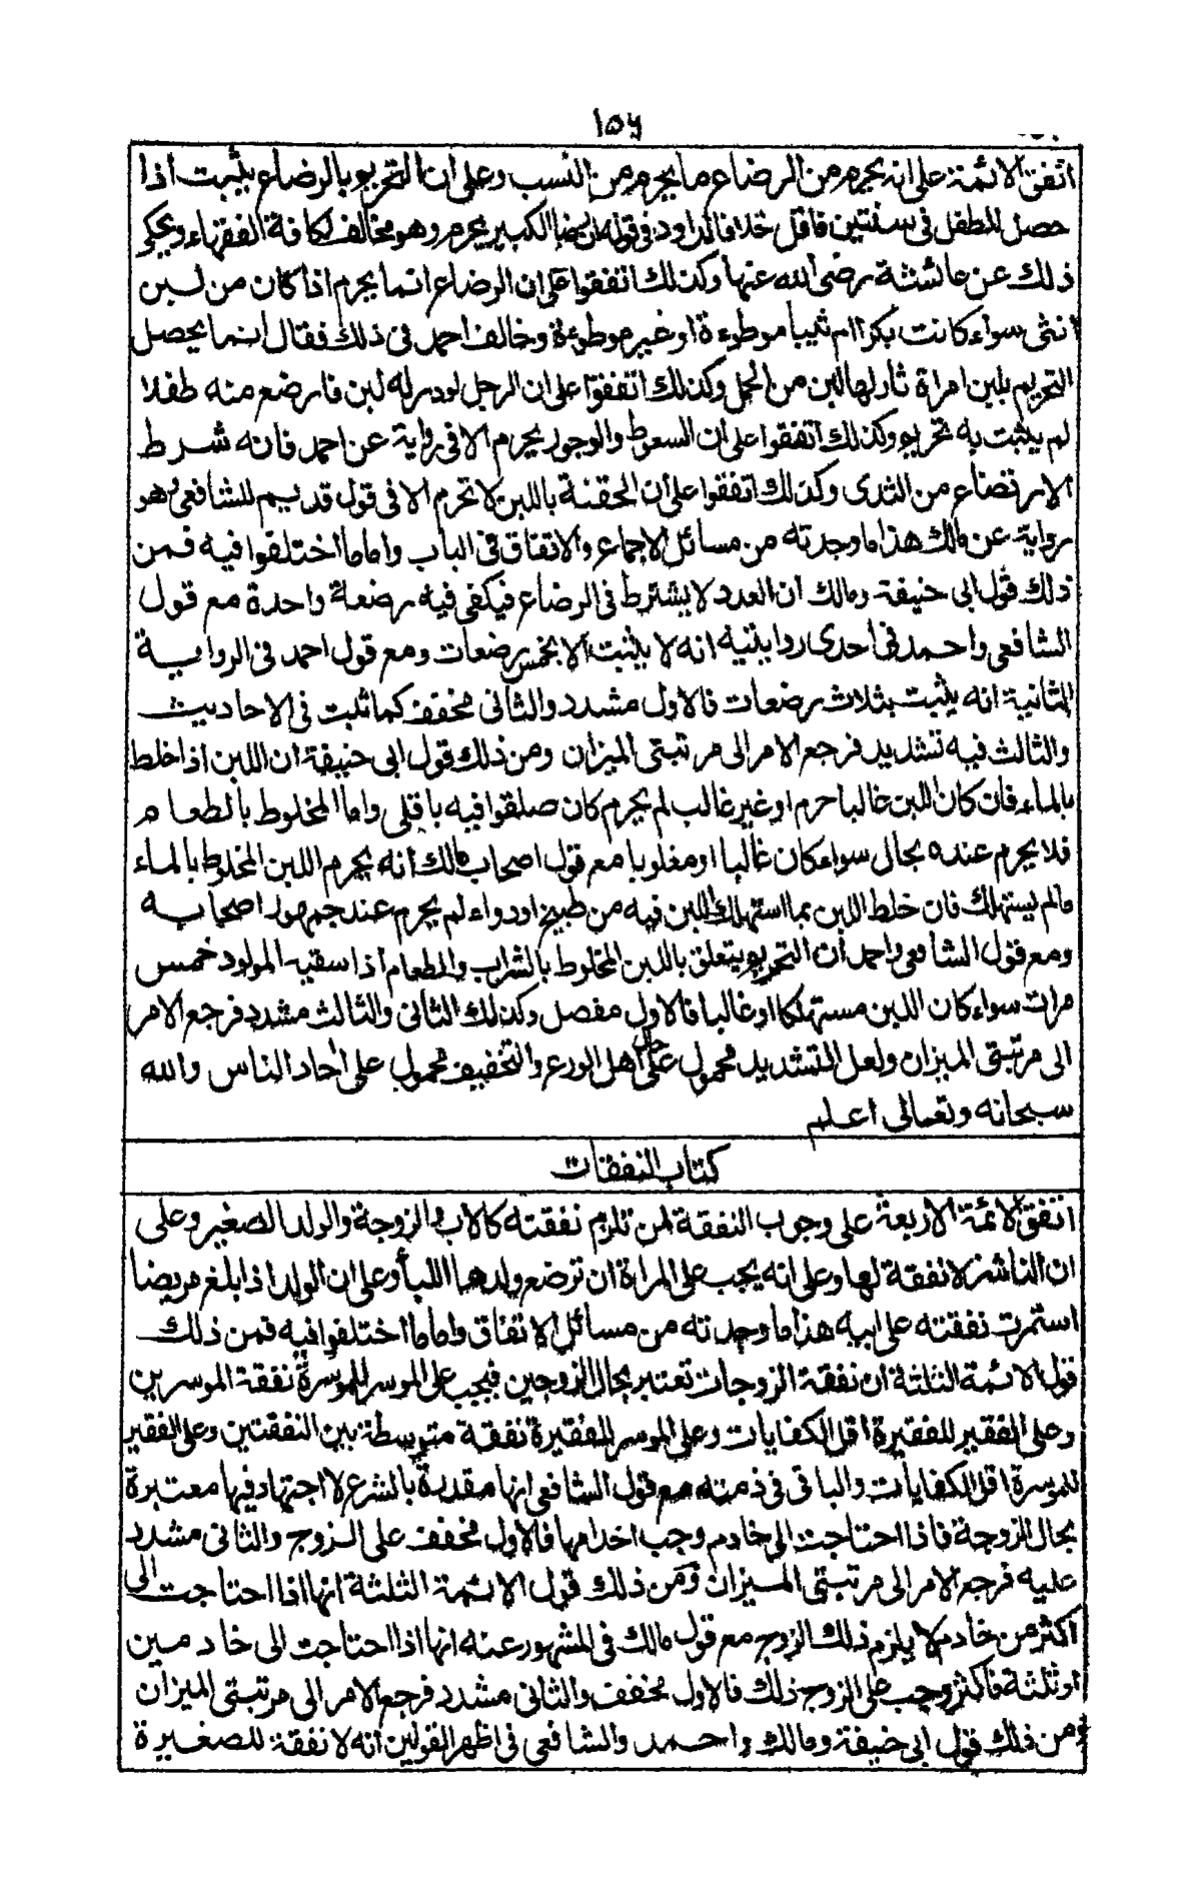 ١٥٦
اتفق الائمة على انه يحرم من الرضاع ما يحرم من النسب وعلى ان التحريم بالرضاع يثبت اذا
حصل للطفل فى سنتين فاقل خلافا لداود فى قوله ان رضاع الكبير يحرم وهو مخالف لكافة الفقهاء ويحكى
ذلك عن عائشة رضى الله عنها وكذلك اتفقوا على ان الرضاع انما يحرم اذا كان من لبن
انثى سواء كانت بكرا ام ثيبا موطوءة او غير موطوءة وخالف احمد فى ذلك فقال انما يحصل
التحريم بلبن امراة ثار لها لبن من الحمل وكذلك اتفقوا على ان الرجل لو در له لبن فارضع منه طفلا
لم يثبت به تحريم وكذلك اتفقوا على ان السعوط والوجور يحرم الا فى رواية عن احمد فانه شرط
الارتضاع من الثدى وكذلك اتفقوا على ان الحقنة باللبن لا تحرم الا فى قول قديم للشافعى وهو
رواية عن مالك هذا ما وجدته من مسائل الاجماع والاتفاق فى الباب واما ما اختلفوا فيه فمن
ذلك قول ابى حنيفة ومالك ان العدد لا يشترط فى الرضاع فيكفى فيه رضعة واحدة مع قول
الشافعى واحمد فى احدى روايتيه انه لا يثبت الا بخمس رضعات ومع قول احمد فى الرواية
الثانية انه يثبت بثلاث رضعات فالاول مشدد والثانى مخفف كما ثبت فى الاحاديث
والثالث فيه تشديد فرجع الامر الى مرتبتى الميزان ومن ذلك قول ابى حنيفة ان اللبن اذا خلط
بالماء فان كان اللبن غالبا حرم او غير غالب لم يحرم كان صلقوا فيه باقلى واما المخلوط بالطعام
فلا يحرم عنده بحال سواء كان غالبا او مغلوبا مع قول اصحاب مالك انه يحرم اللبن المخلوط بالماء
ما لم يستهلك فان خلط اللبن بما استهلك اللبن فيه من طبيخ او دواء لم يحرم عند جمهور اصحابه
ومع قول الشافعى واحمد ان التحريم يتعلق باللبن المخلوط بالشراب والطعام اذا سقيه المولود خمس
مرات سواء كان اللبن مستهلكا او غالبا فالاول مفصل وكذلك الثانى والثالث مشدد فرجع الامر
الى مرتبتى الميزان ولعل التشديد محمول على حال اهل الورع والتخفيف محمول على احاد الناس والله
سبحانه وتعالى اعلم
كتاب النفقات
اتفق الائمة الاربعة على وجوب النفقة لمن تلزم نفقته كالاب والزوجة والولد الصغير وعلى
ان الناشز لا نفقة لها وعلى انه يجب على المراة ان ترضع ولدها اللبأ وعلى ان الولد اذا بلغ مريضا
استمرت نفقته على ابيه هذا ما وجدته من مسائل الاتفاق واما ما اختلفوا فيه فمن ذلك
قول الائمة الثلثة ان نفقة الزوجات تعتبر بحال الزوجين فيجب على الموسر للموسرة نفقة الموسرين
وعلى الفقير للفقيرة اقل الكفايات وعلى الموسر للفقيرة نفقة متوسطة بين النفقتين وعلى الفقير
للموسرة اقل الكفايات والباقى فى ذمته مع قول الشافعى انها مقدرة بالشرع لا اجتهاد فيها معتبرة
بحال الزوجة فاذا احتاجت الى خادم وجب اخدامها فالاول مخفف على الزوج والثانى مشدد
عليه فرجع الامر الى مرتبتى الميزان ومن ذلك قول الائمة الثلثة انها اذا احتاجت الى
اكثر من خادم لا يلزم ذلك الزوج مع قول مالك فى المشهور عنه انها اذا احتاجت الى خادمين
او ثلثة فاكثر وجب على الزوج ذلك فالاول مخفف والثانى مشدد فرجع الامر الى مرتبتى الميزان
ومن ذلك قول ابى حنيفة ومالك واحمد والشافعى فى اظهر القولين انه لا نفقة للصغيرة